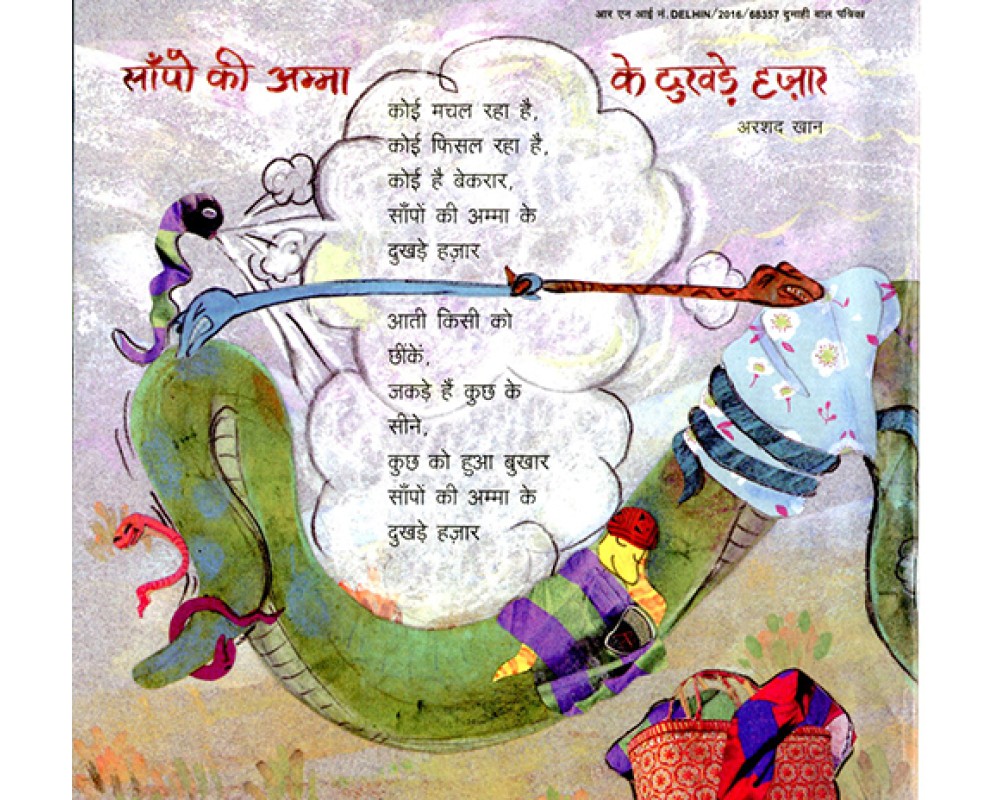 आर एन आई नं. DELHIN/2016/68357 दुमाही बाल पत्रिका
साँपों की अम्मा के दुखड़े हज़ार
अरशद खान
कोई मचल रहा है,
कोई फिसल रहा है,
कोई है बेकरार,
साँपों की अम्मा के
दुखड़े हज़ार
आती किसी को
छींकें,
जकड़े हैं कुछ के
सीने,
कुछ को हुआ बुखार
साँपों की अम्मा के
दुखड़े हज़ार